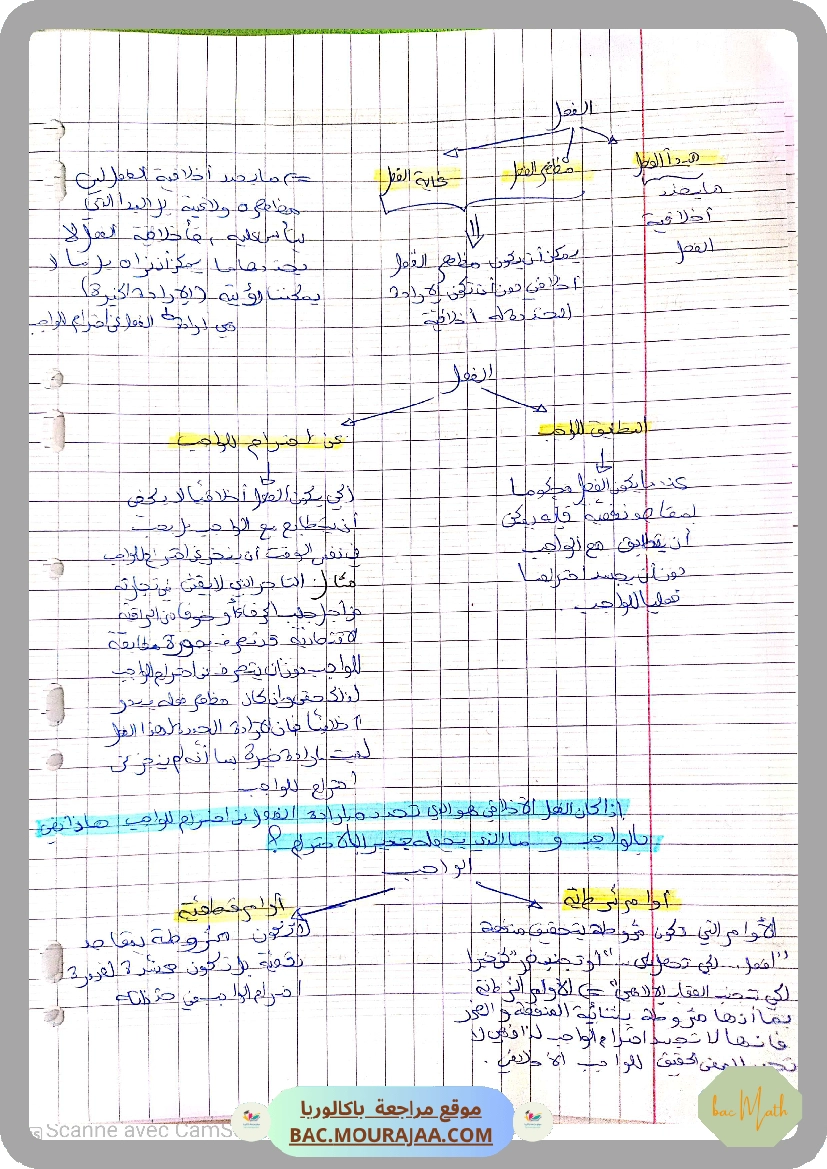 الفعل
مبدأ الفعل
ما يحدد
أخلاقية
الفعل
مظهر الفعل
غاية الفعل
يمكن أن يكون مظهر الفعل
أخلاقي دون أن تكون الإرادة
المحددة له أخلاقية
=> ما يحدد أخلاقية الفعل ليس
مظاهره ولا غايته بل المبدأ الذي
يتأسس عليه، فأخلاقية الفعل لا
يحددها ما يمكن أن نراه بل ما لا
يمكننا رؤيته (الإرادة الخيرة)
هي إرادة الفعل عن احترام للواجب
الفعل
المطابق للواجب
عندما يكون الفعل محكوما
لمقاصد نفعية فإنه يمكن
أن يتطابق مع الواجب
دون أن يجسد احتراما
فعليا للواجب.
عن احترام للواجب
لكي يكون الفعل أخلاقيا لا يكفي
أن يتطابق مع الواجب بل يجب
في نفس الوقت أن ينجز عن احترام للواجب
مثال: التاجر الذي لا يغش في تجارته
من أجل جلب الحرفاء أو خوفا من المراقبة
الاقتصادية قد تصرف بصورة مطابقة
للواجب دون أن يتصرف عن احترام للواجب
لذلك حتى وإن كان مظهر فعله يبدو
أخلاقيا فإن الإرادة المحددة لهذا الفعل
ليست بإرادة خيرة بما أنه لم ينجز عن
احترام للواجب
إذا كان الفعل الأخلاقي هو الذي تحدده إرادة الفعل عن احترام للواجب فماذا نعني
بالواجب و ما الذي يجعله جدير بالاحترام؟
الواجب
أوامر شرطية
الأوامر التي تكون مشروطة بتحقيق منفعة
"افعل.. لكي تحصل على.." أو تجنب ضرر "كن خيرا
لكي تتجنب العقاب الإلاهي" => الأوامر الشرطية
بما أنها مشروطة بثنائية المنفعة و الضرر
فإنها لا تجسد احترام الواجب لذا فهي لا
تجسد المعنى الحقيقي للواجب الأخلاقي.
أوامر قطعية
لا تكون مشروطة بمقاصد
نفعية بل تكون مجسدة لضرورة
احترام الواجب في حد ذاته
موقع مراجعة باكالوريا
BAC.MOURAJAA.COM
bac Math
Scanné avec CamS